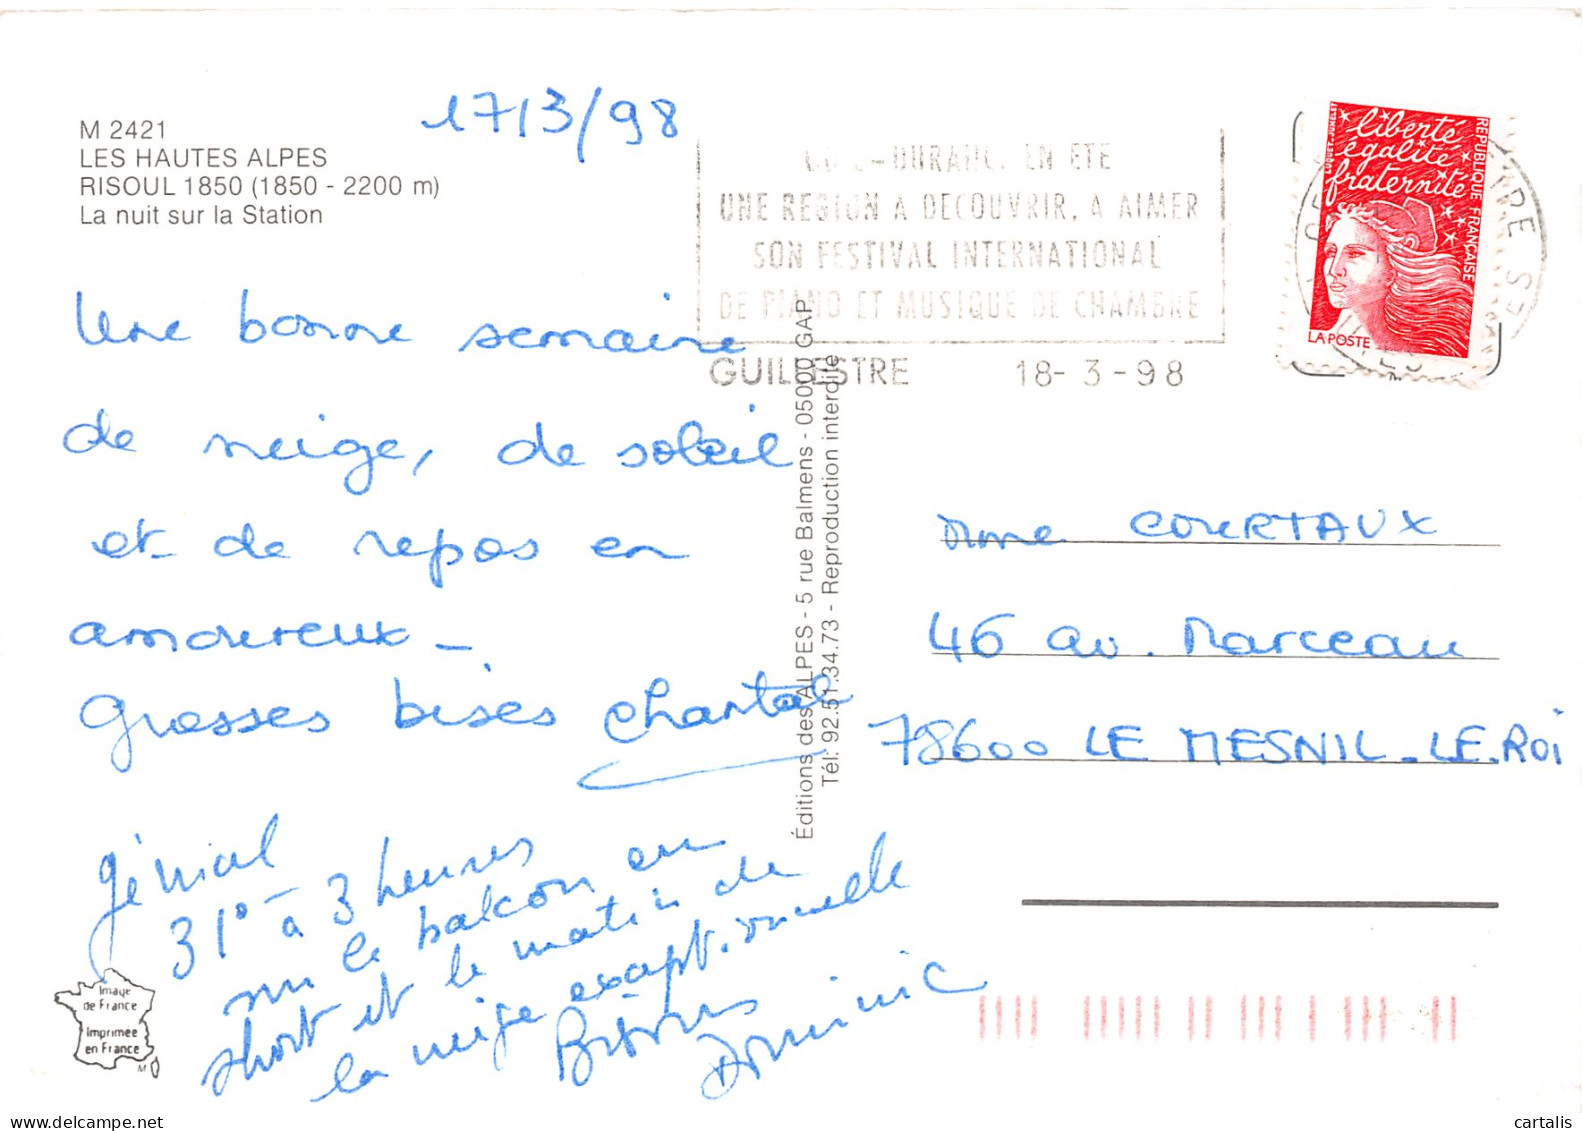 M 2421
LES HAUTES ALPES
RISOUL 1850 (1850 - 2200 m)
La nuit sur la Station
17/3/98
-DURANC. EN ETE
UNE REGION A DECOUVRIR, A AIMER
SON FESTIVAL INTERNATIONAL
DE PIANO ET MUSIQUE DE CHAMBRE
GUILLESTRE 18-3-98
liberté
égalité
fraternité
REPUBLIQUE FRANÇAISE
LUQUET-JUMELET
LA POSTE
Une bonne semaine
de neige, de soleil
et de repos en
amoureux -
Grosses bises Chantal
génial
31° à 3 heures
sur le balcon en
short et le matin de
la neige exceptionnelle
Bisous
Dominic
Éditions des ALPES - 5 rue Balmens - 05000 GAP
Tél: 92.51.34.73 - Reproduction interdite
Mme COURTAUX
46 av. Marceau
78600 LE MESNIL-LE-ROI
Image
de France
Imprimée
en France
M
www.delcampe.net
cartalis